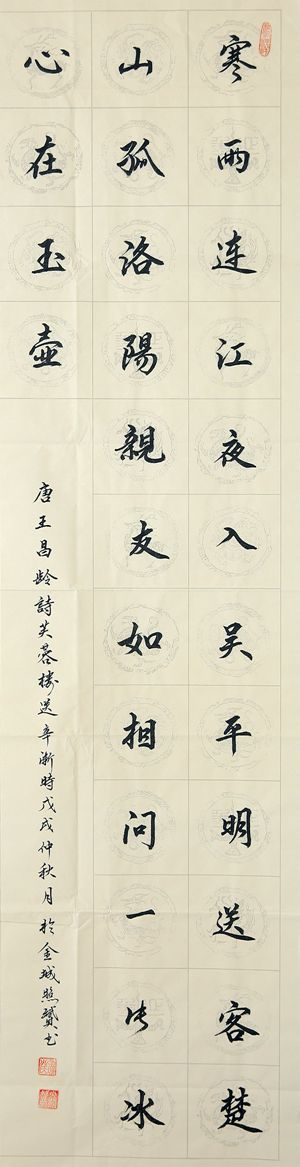 寒雨连江夜入吴平明送客楚
山孤洛陽親友如相问一片冰
心在玉壺
唐王昌龄詩芙蓉楼送辛渐時戊戌仲秋月於金城书